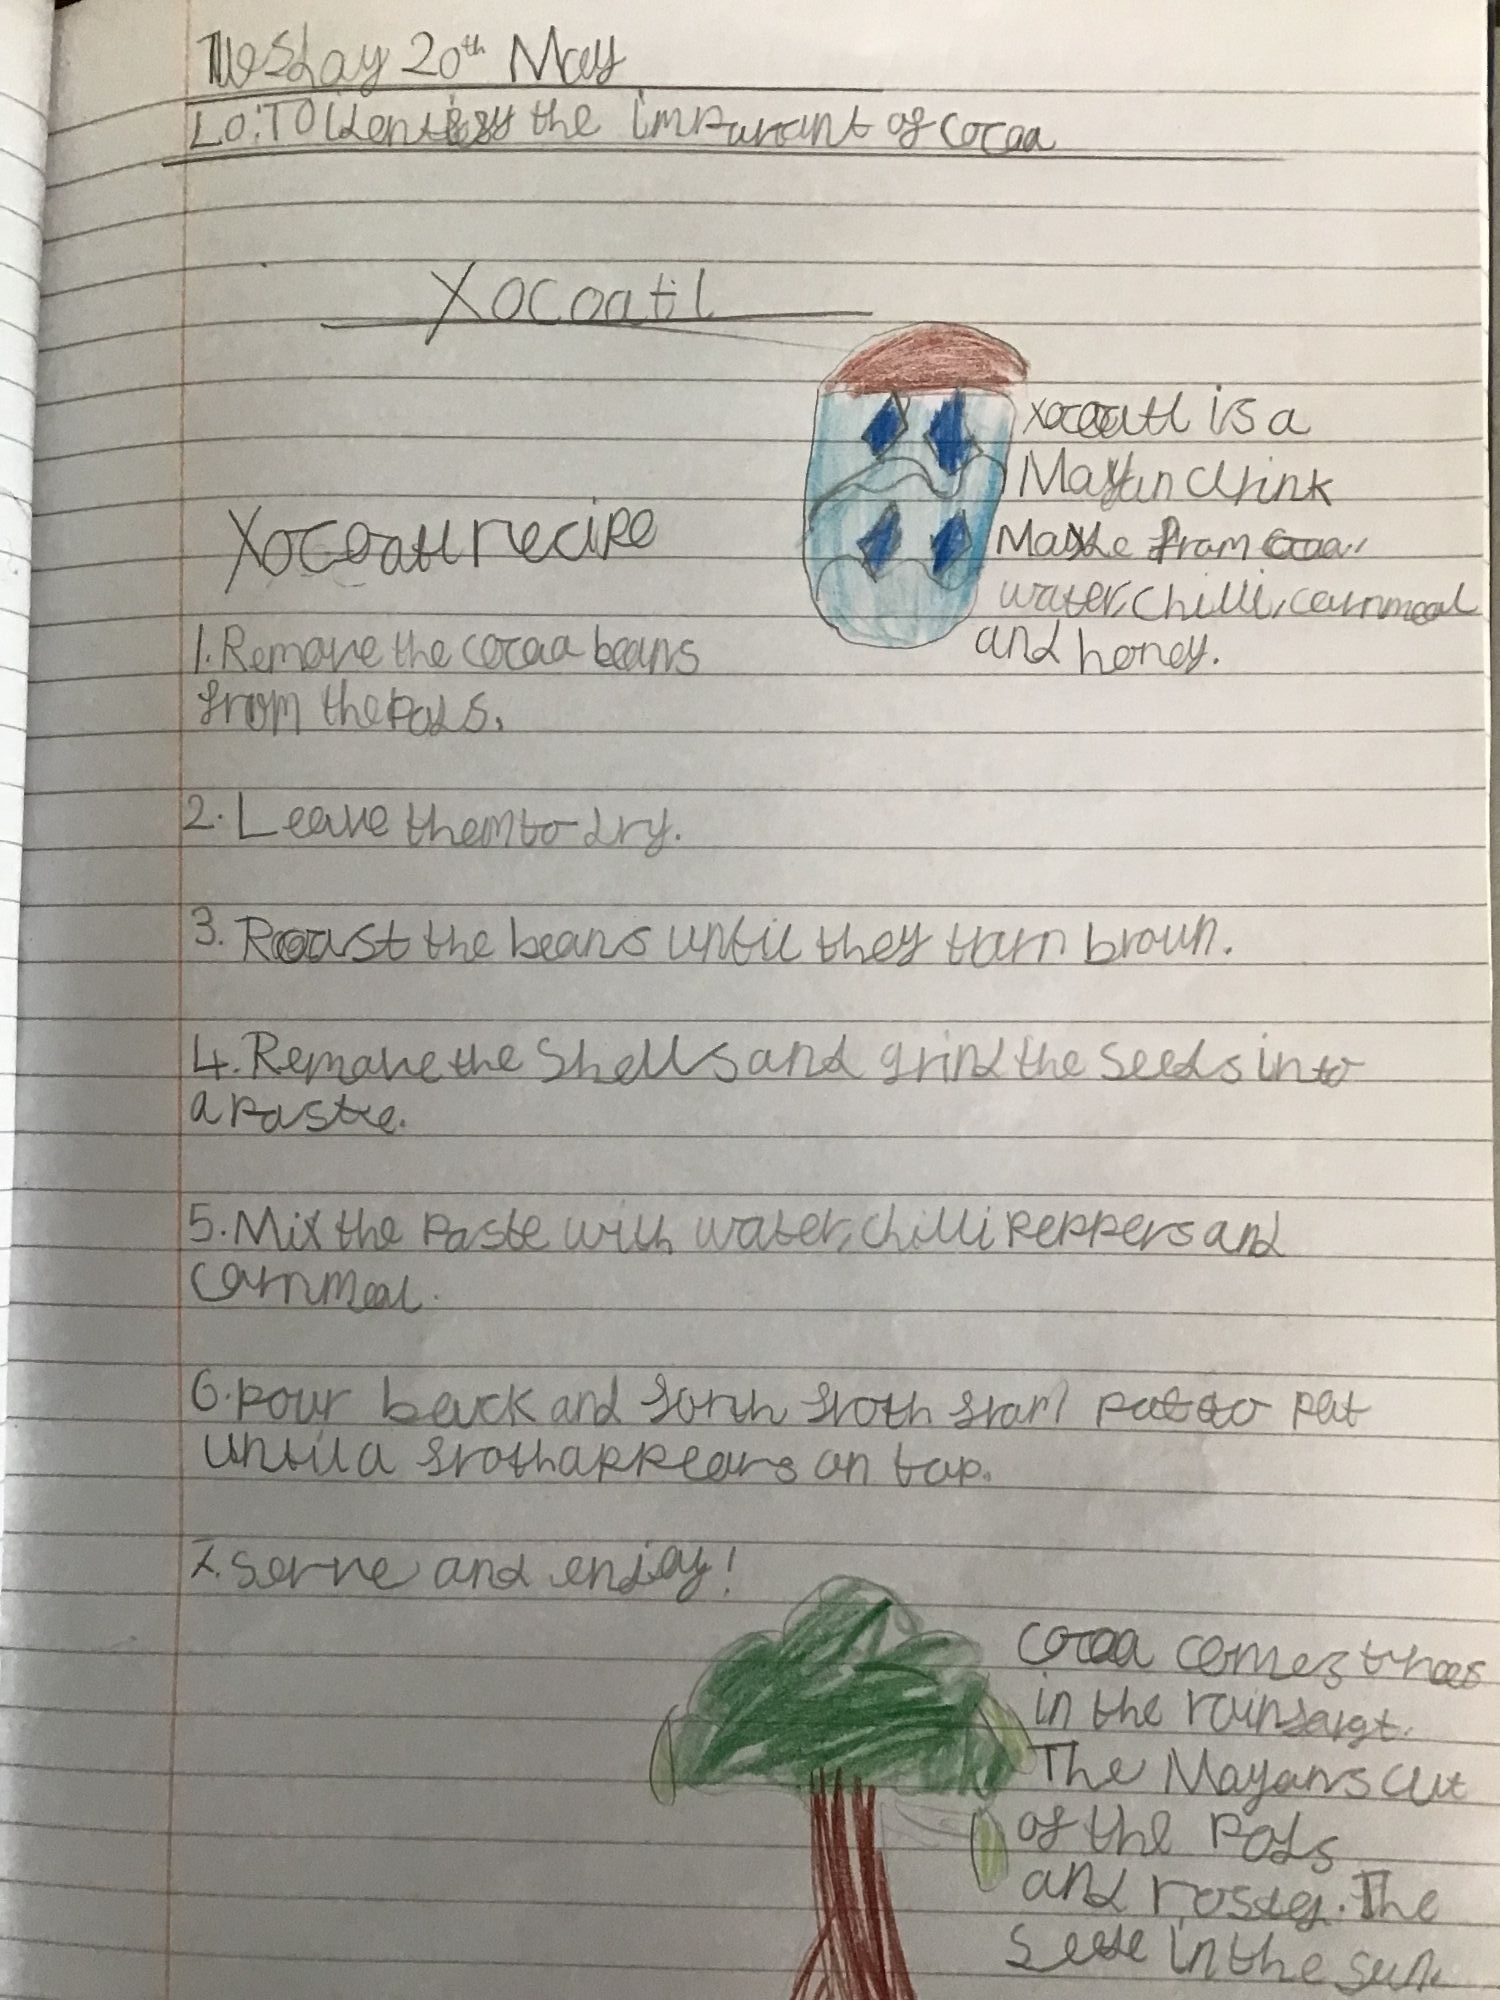 Tuesday 20th May
LO: TO identify the impurant of cocoa
Xocoatil
xocoatl is a
Mayan drink
Made from cocoa,
water, chilli, cornmeal
and honey.
Xocoatl recipe
1. Remove the cocoa beans
from the pods.
2. Leave them to dry.
3. Roast the beans until they turn brown.
4. Remove the Shells and grind the seeds into
a paste.
5. Mix the paste with water, chilli peppers and
cornmeal.
6. pour back and forth froth from pot to pot
until a froth appears on top.
7. Serve and enjoy!
Cocoa comes trees
in the
The Mayans cut
of the pods
and The
in the sun.